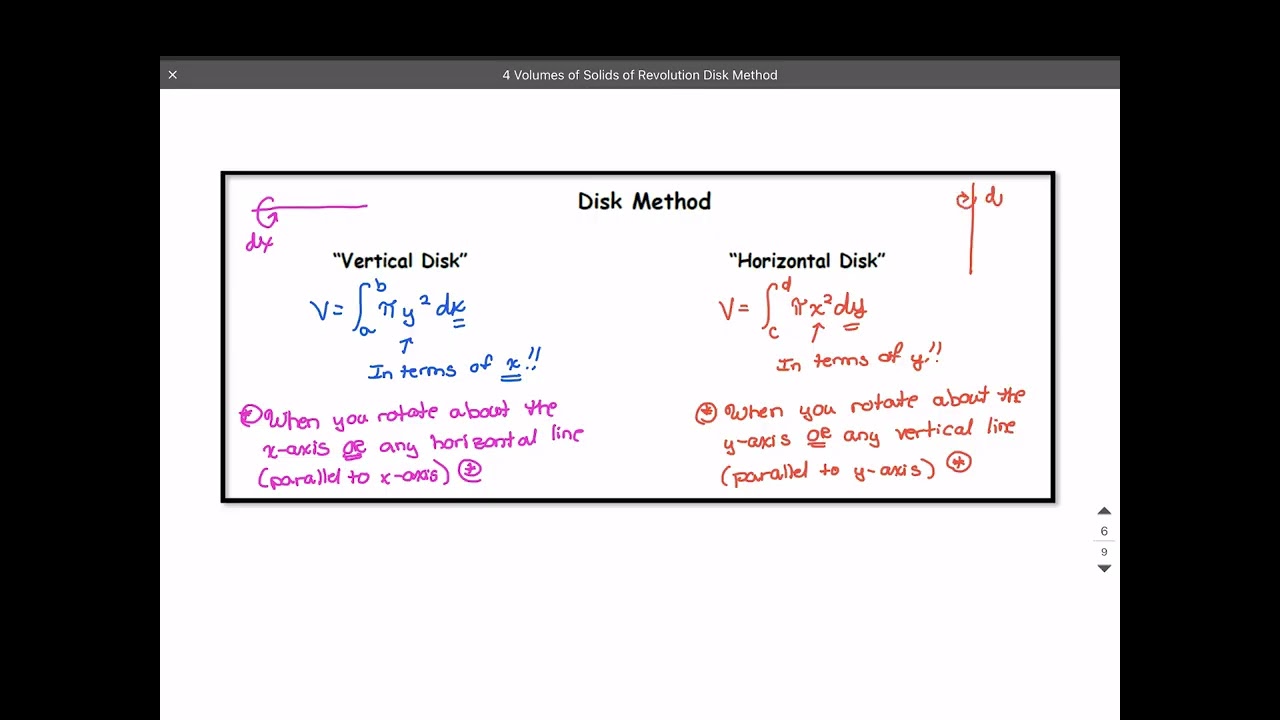 4 Volumes of Solids of Revolution Disk Method
Disk Method
dx
d
"Vertical Disk"
"Horizontal Disk"
V = ∫_a^b π y² dx
V = ∫_c^d π x² dy
↑
↑
In terms of x!!
In terms of y!!
* When you rotate about the
x-axis OR any horizontal line
(parallel to x-axis) *
* When you rotate about the
y-axis OR any vertical line
(parallel to y-axis) *
6
9